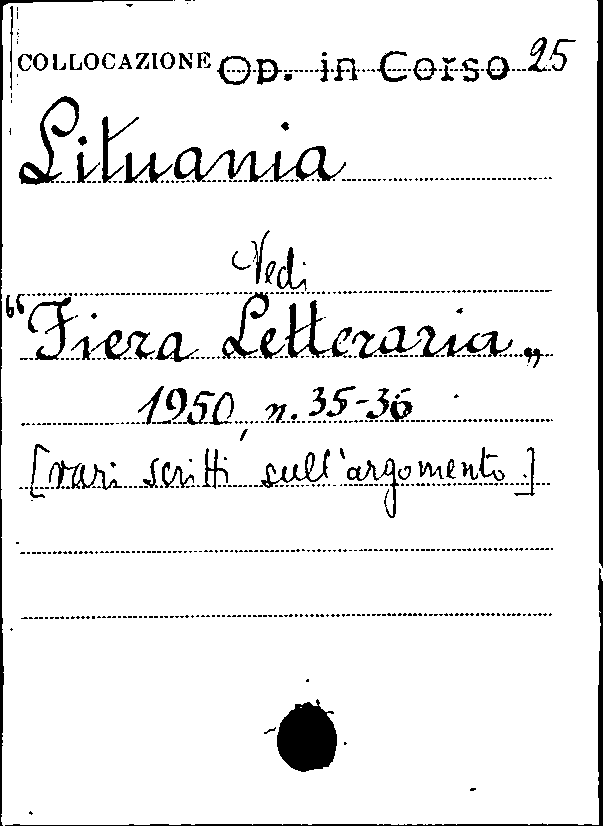 COLLOCAZIONE Op. in Corso 25
Lituania
Vedi
“Fiera Letteraria„
1950, n. 35-36
[vari scritti sull'argomento.]